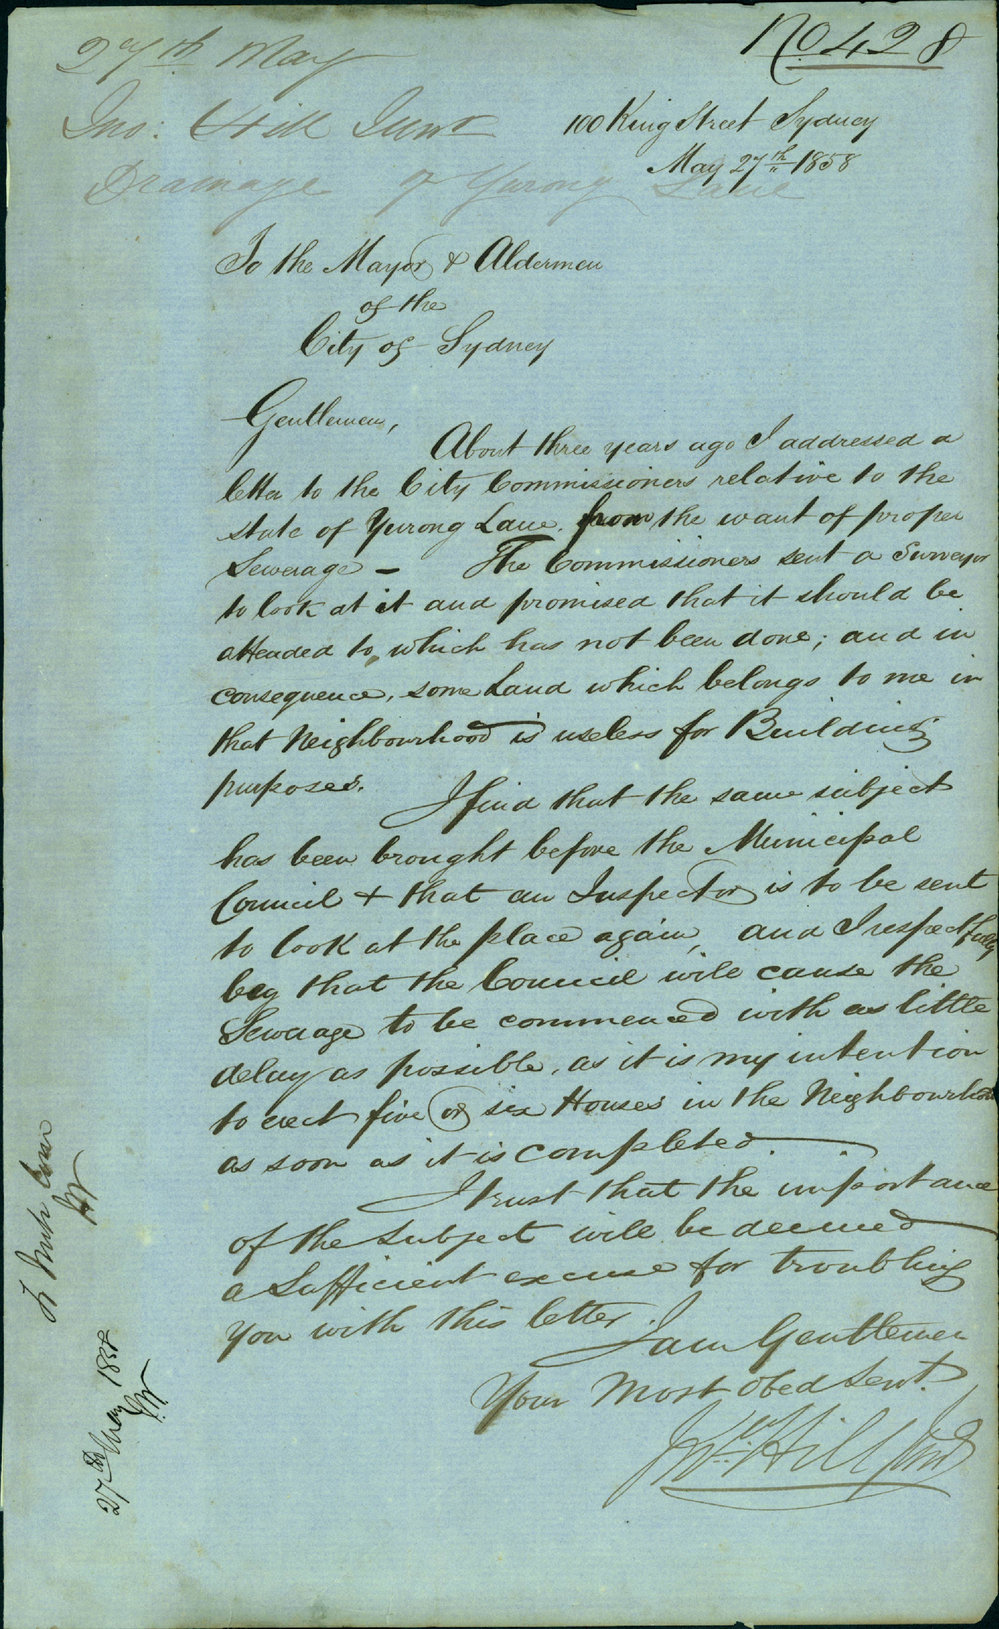 No. 428
27th May
Jno: Hill Junr
Drainage of Yurong Lane
100 King Street Sydney
May 27th 1858
To the Mayor & Aldermen
of the
City of Sydney
Gentlemen,
About three years ago I addressed a
letter to the City Commissioners relative to the
state of Yurong Lane, from the want of proper
Sewerage – The Commissioners sent a Surveyor
to look at it and promised that it should be
attended to, which has not been done; and in
consequence, some Land which belongs to me in
that Neighbourhood is useless for Building
purposes.
I find that the same subject
has been brought before the Municipal
Council & that an Inspector is to be sent
to look at the place again, and I respectfully
beg that the Council will cause the
Sewerage to be commenced with as little
delay as possible, as it is my intention
to erect five or six Houses in the Neighbourhood
as soon as it is completed.
I trust that the importance
of the Subject will be deemed
a Sufficient excuse for troubling
you with this letter.
I am Gentlemen
Your Most Obed Servt.
Jno. Hill Junr
27th May 1858